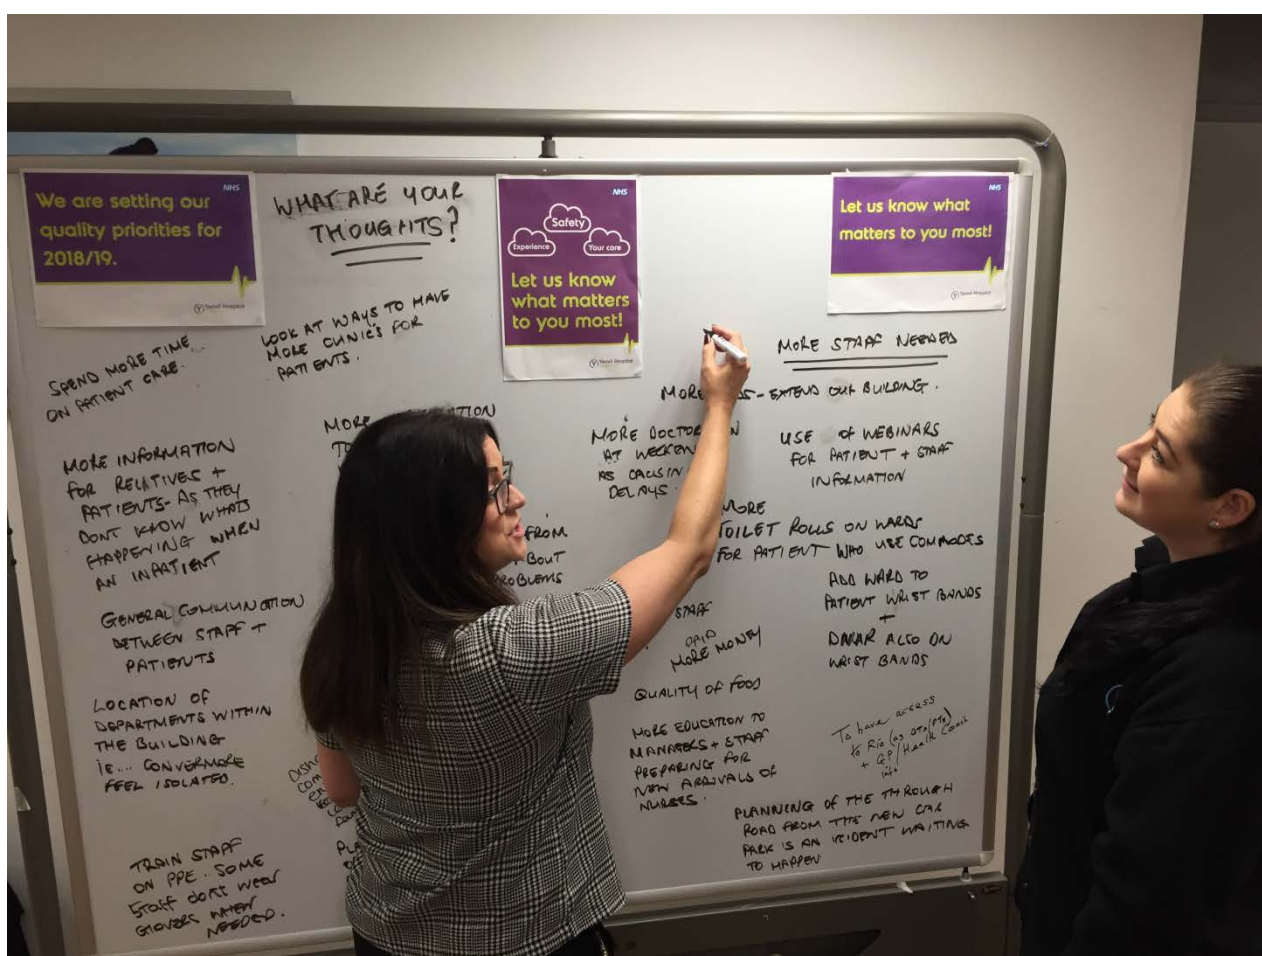 We are setting our
quality priorities for
2018/19.
NHS
Yeovil Hospital
WHAT ARE YOUR
THOUGHTS?
NHS
Safety
Experience
Your care
Let us know
what matters
to you most!
Yeovil Hospital
NHS
Let us know what
matters to you most!
Yeovil Hospital
SPEND MORE TIME
ON PATIENT CARE.
LOOK AT WAYS TO HAVE
MORE CLINIC'S FOR
PATIENTS.
MORE INFORMATION
FOR RELATIVES +
PATIENTS- AS THEY
DONT KNOW WHATS
HAPPENING WHEN
AN INPATIENT
GENERAL COMMUNCATION
BETWEEN STAFF +
PATIENTS
LOCATION OF
DEPARTMENTS WITHIN
THE BUILDING
IE.... CONVERMORE
FEEL ISOLATED.
TRAIN STAFF
ON PPE. SOME
Staff dont wear
GLOVES WHEN
NEEDED.
MORE
FROM
BOUT
ROBLEMS
MORE STAFF NEEDED
MORE - EXTEND OUR BUILDING.
MORE DOCTOR
AT WEEKEN
AS CAUSIN
DELAYS.
USE of WEBINARS
FOR PATIENT + STAFF
INFORMATION
MORE
TOILET ROLLS ON WARDS
FOR PATIENT WHO USE COMMODES
ADD WARD TO
PATIENT WRIST BANDS
+
DNAR ALSO ON
WRIST BANDS
STAFF
PAID
MORE MONEY
QUALITY OF FOOD
MORE EDUCATION TO
MANAGERS + STAFF
PREPARING FOR
NEW ARRIVALS OF
NURSES.
To have access
to Rio (as OTs/PTs)
+ GP/Health
info
PLANNING OF THE THROUGH
ROAD FROM THE NEW CAR
PARK IS AN ICIDENT WAITING
TO HAPPEN